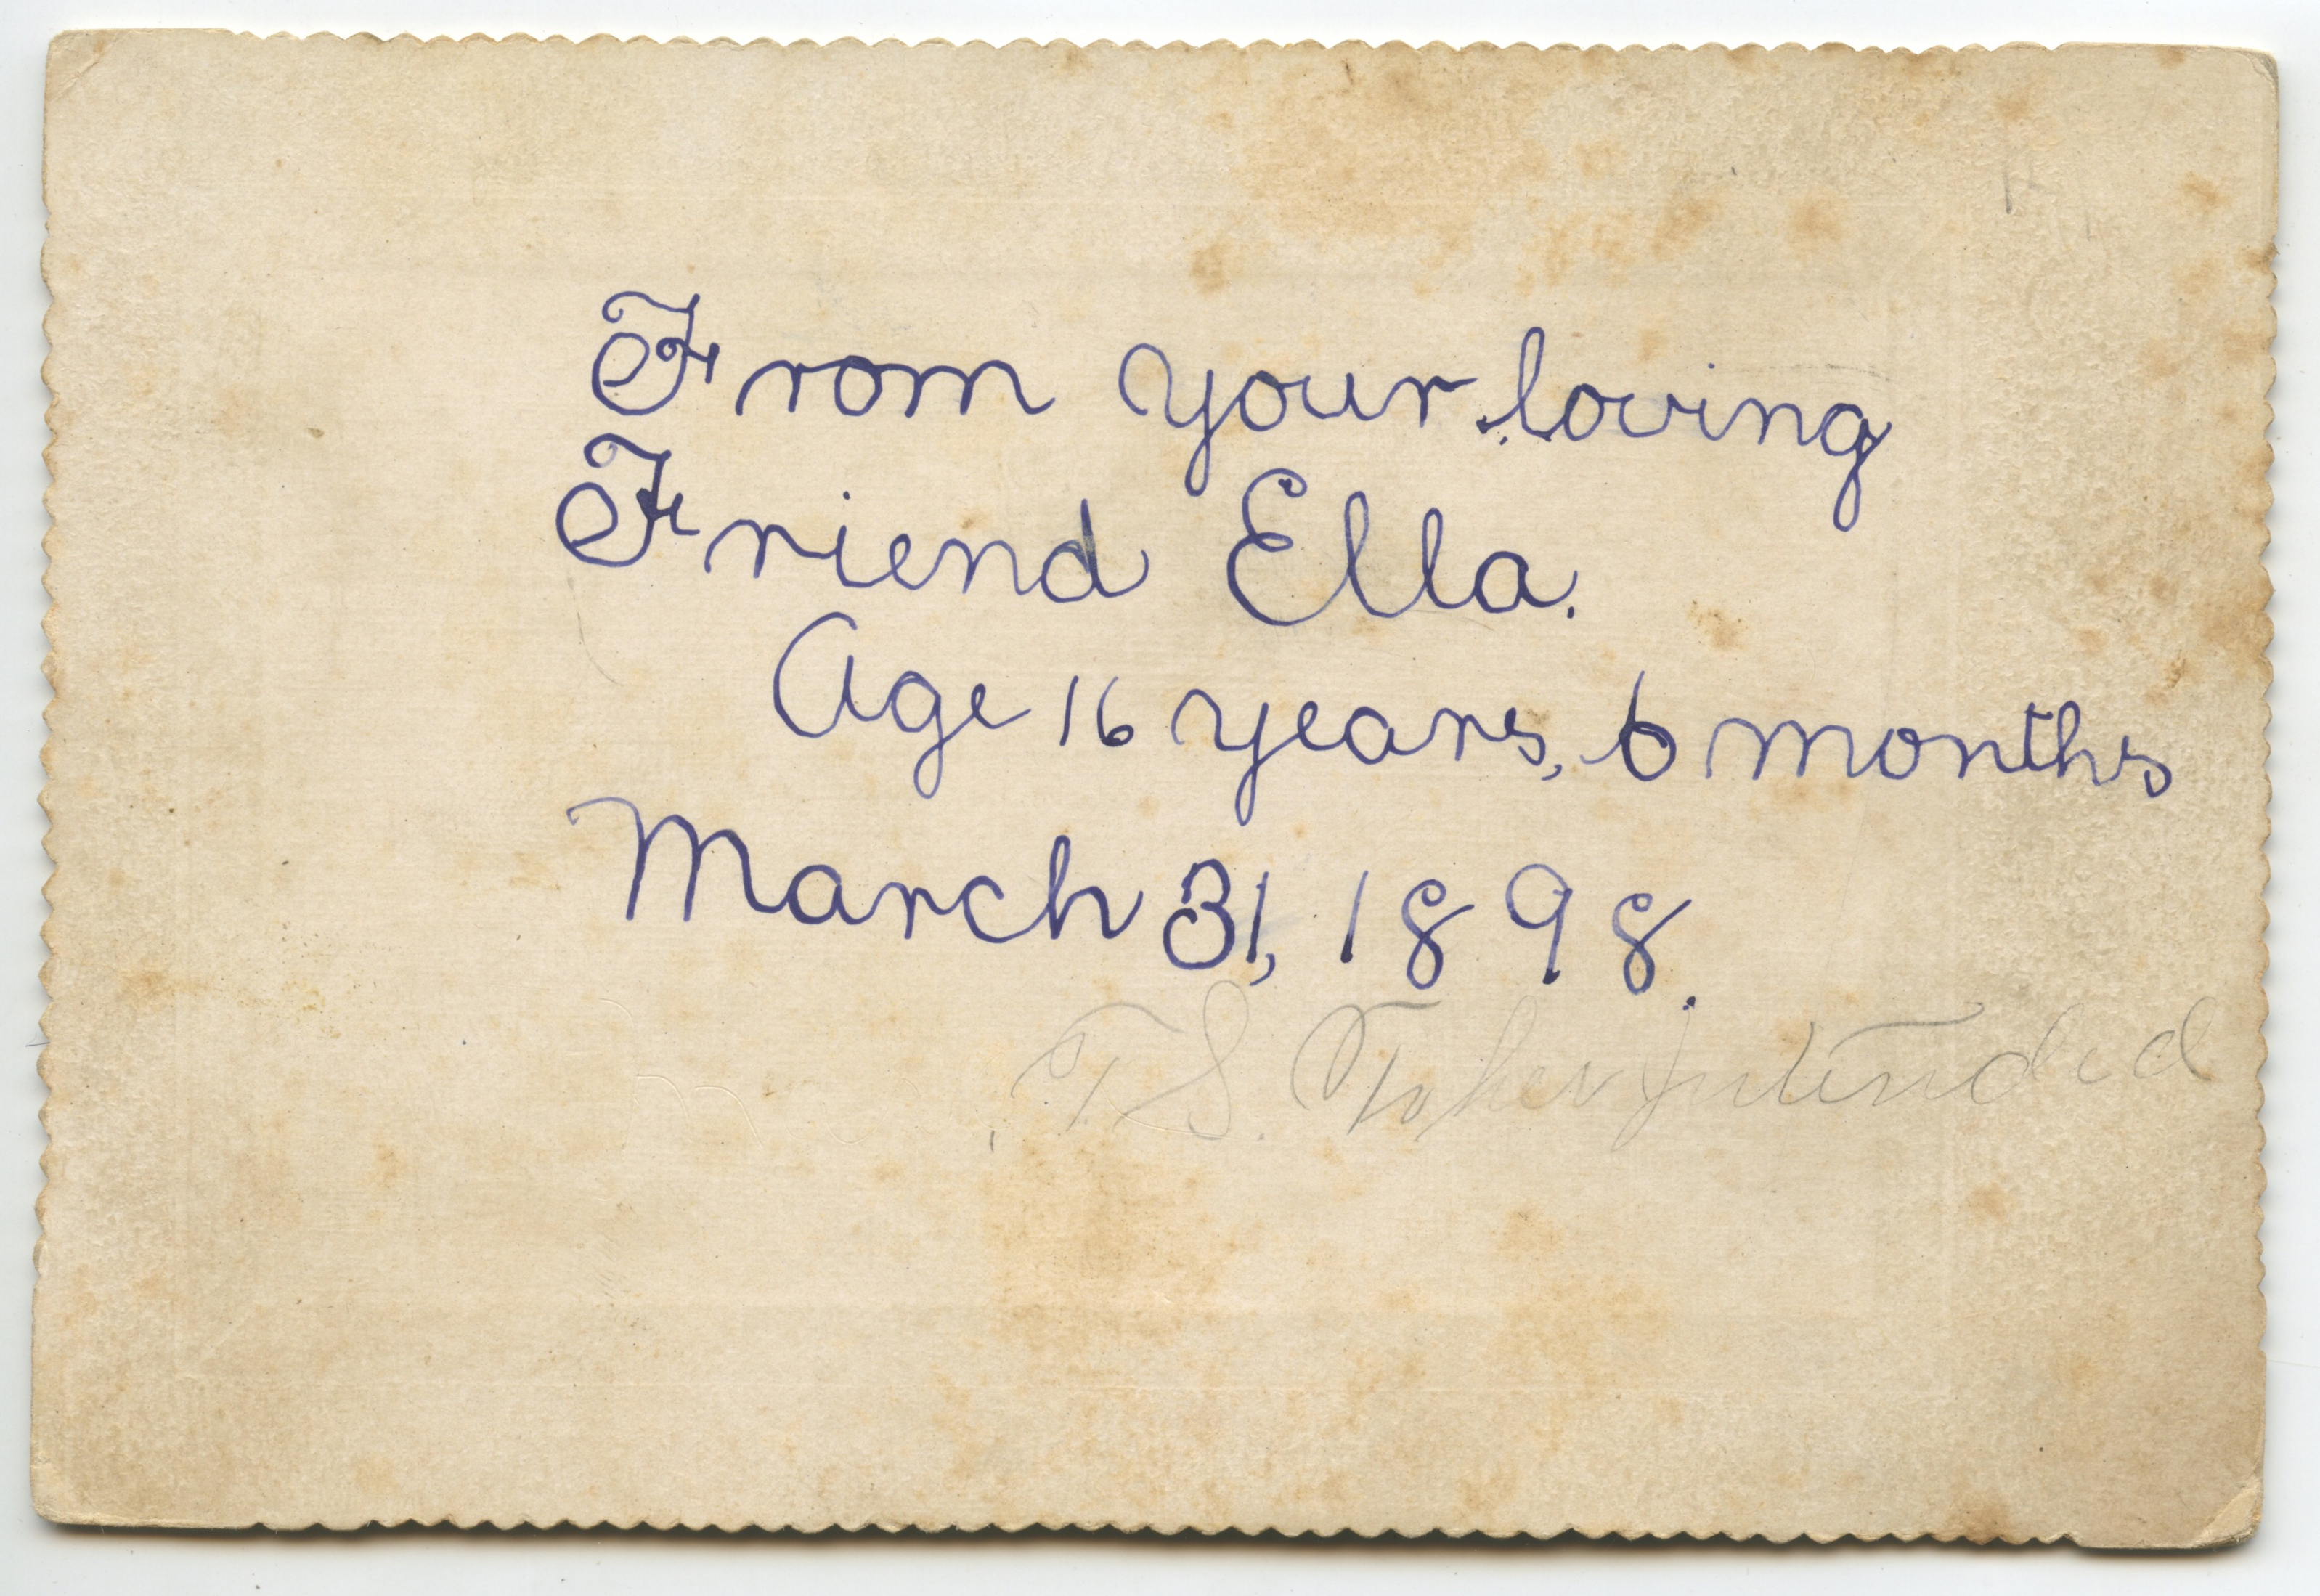 From your loving
Friend Ella.
Age 16 years, 6 months
March 31, 1898.
To her intended